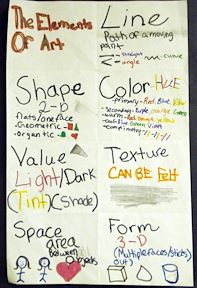 The Elements
Of Art
Line
Path of a moving
point
straight
angle
curve
Shape
2-D
flats/oneface
Geometric
organtic
Color HUE
primary-Red, Blue, Yellow
secondary-Purple, orange, Green
warm-Red, orange, yellow
cool-Blue, Green, Violet
Value
Light/Dark
(Tint)(Shade)
Texture
CAN BE felt
Space
area
Between
objects
Form
3-D
(Multiplefaces/sticks
out)